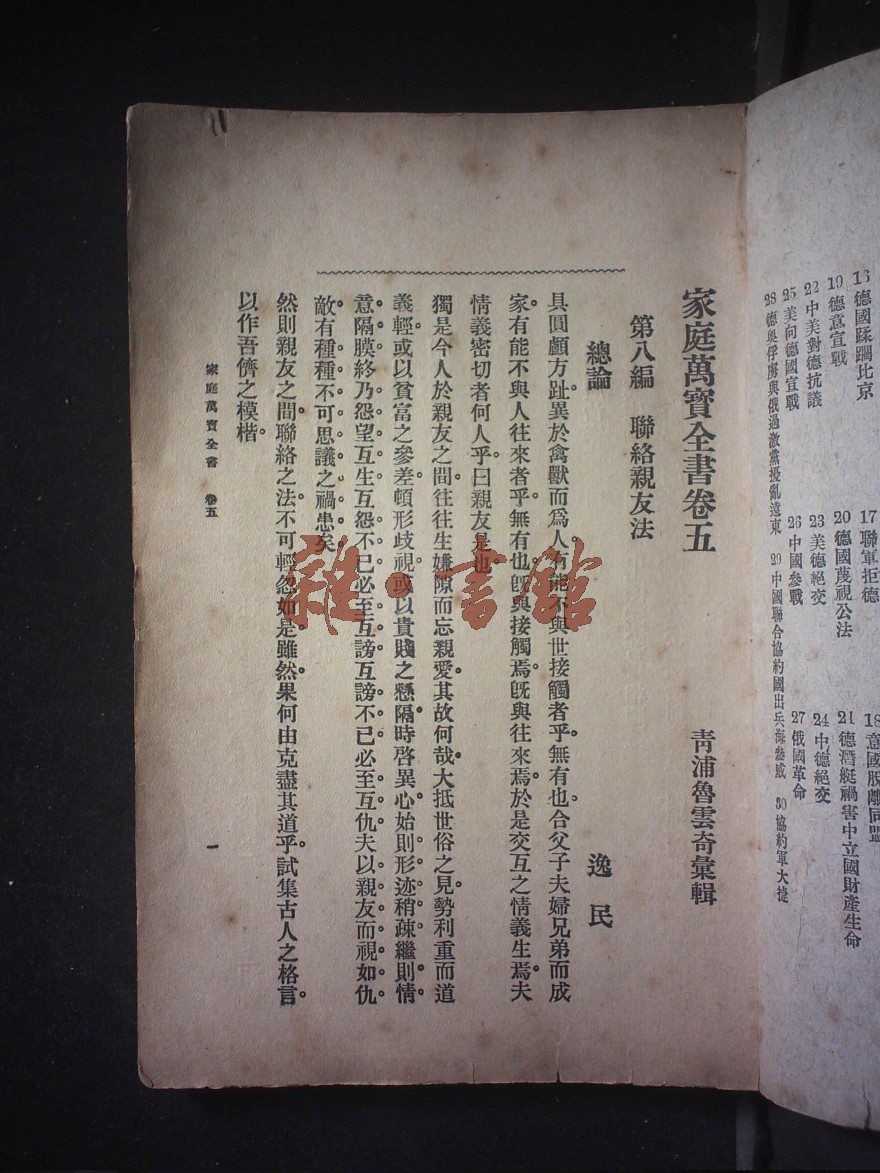 16 德國蹂躪比京
17 聯軍拒德
18 意國脫離同盟
19 德意宣戰
20 德國蔑視公法
21 德潛艇禍害中立國財產生命
22 中美對德抗議
23 美德絕交
24 中德絕交
25 美向德國宣戰
26 中國參戰
27 俄國革命
28 德奧俘虜與俄過激黨擾亂遠東
29 中國聯合協約國出兵海參威
30 協約軍大捷
家庭萬寶全書卷五
青浦魯雲奇彙輯
第八編 聯絡親友法
總論
逸民
具圓顱方趾異於禽獸而爲人有能不與世接觸者乎無有也合父子夫婦兄弟而成
家有能不與人往來者乎無有也旣與接觸焉旣與往來焉於是交互之情義生焉夫
情義密切者何人乎曰親友是也
獨是今人於親友之間往往生嫌隙而忘親愛其故何哉大抵世俗之見勢利重而道
義輕或以貧富之參差頓形歧視或以貴賤之懸隔時啓異心始則形迹稍疎繼則情
意隔膜終乃怨望互生互怨不已必至互謗互謗不已必至互仇夫以親友而視如仇
敵有種種不可思議之禍患矣
然則親友之間聯絡之法不可輕忽如是雖然果何由克盡其道乎試集古人之格言
以作吾儕之模楷
家庭萬寶全書 卷五
一
雜·書館